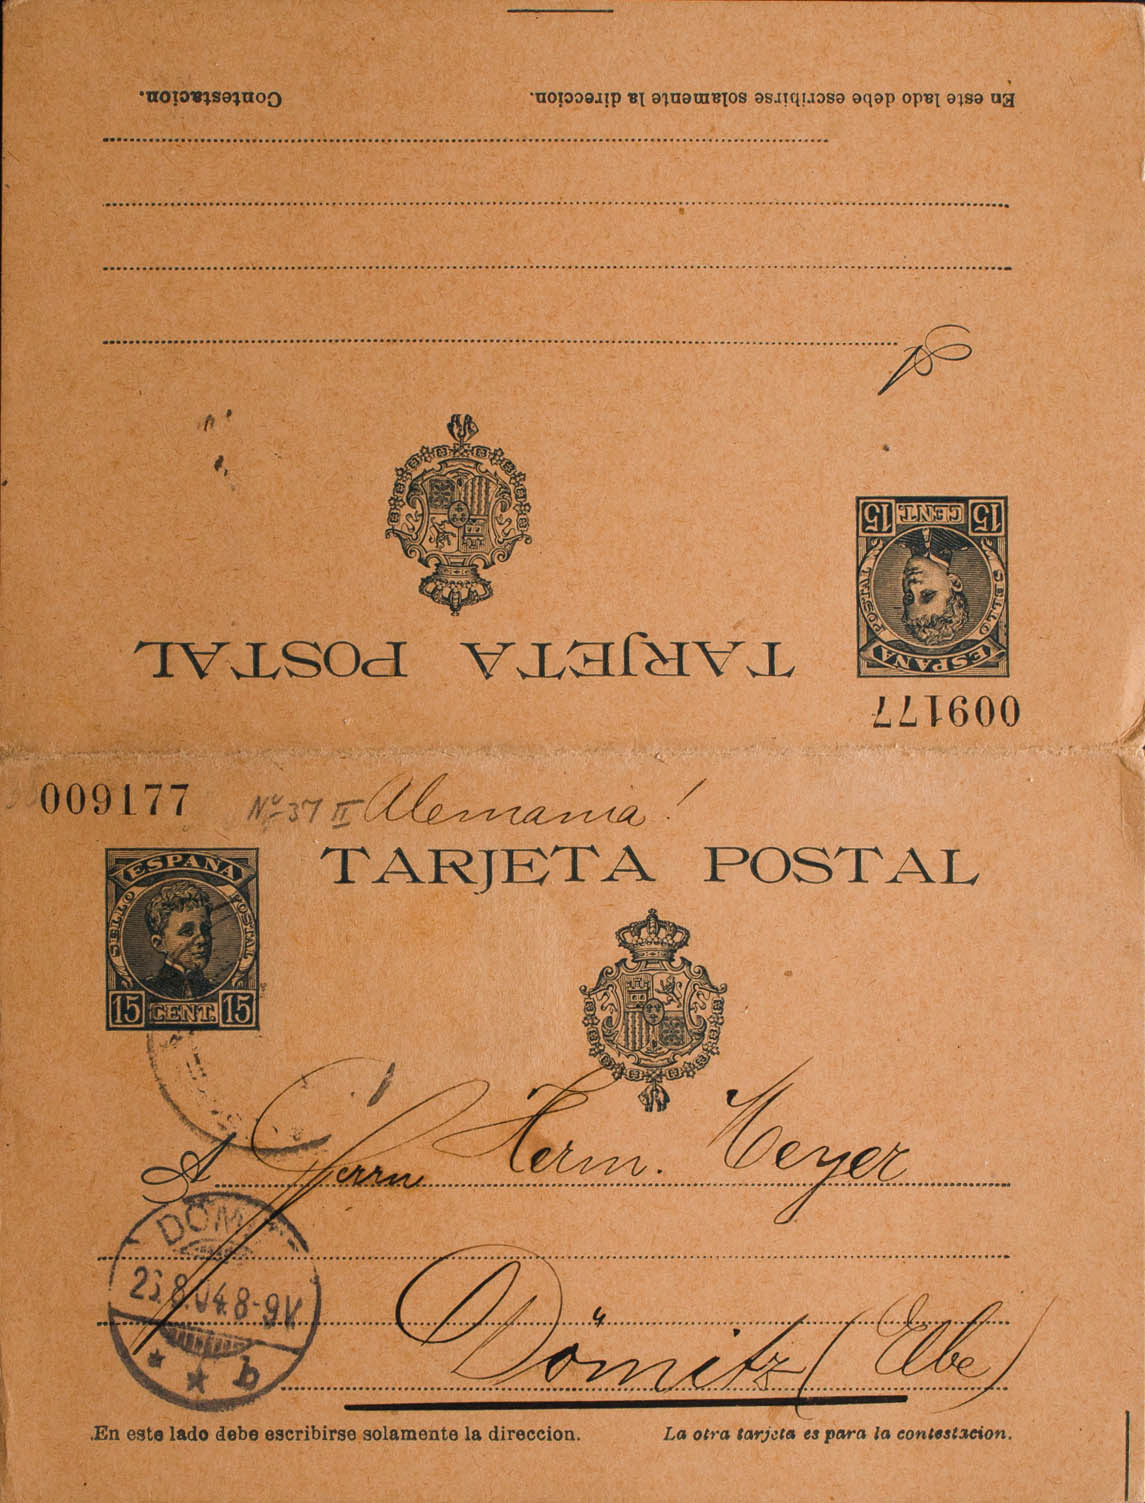 En este lado debe escribirse solamente la direccion.
Contestacion.
A
15 CENT. 15
SELLO POSTAL
ESPAÑA
TARJETA POSTAL
009177
009177
Nº 37 II Alemania!
TARJETA POSTAL
ESPAÑA
SELLO POSTAL
15 CENT. 15
A Herrn Herm. Meyer
DÖMI
8.04.8-9V
* * b
Dömitz (Elbe)
En este lado debe escribirse solamente la direccion.
La otra tarjeta es para la contestacion.